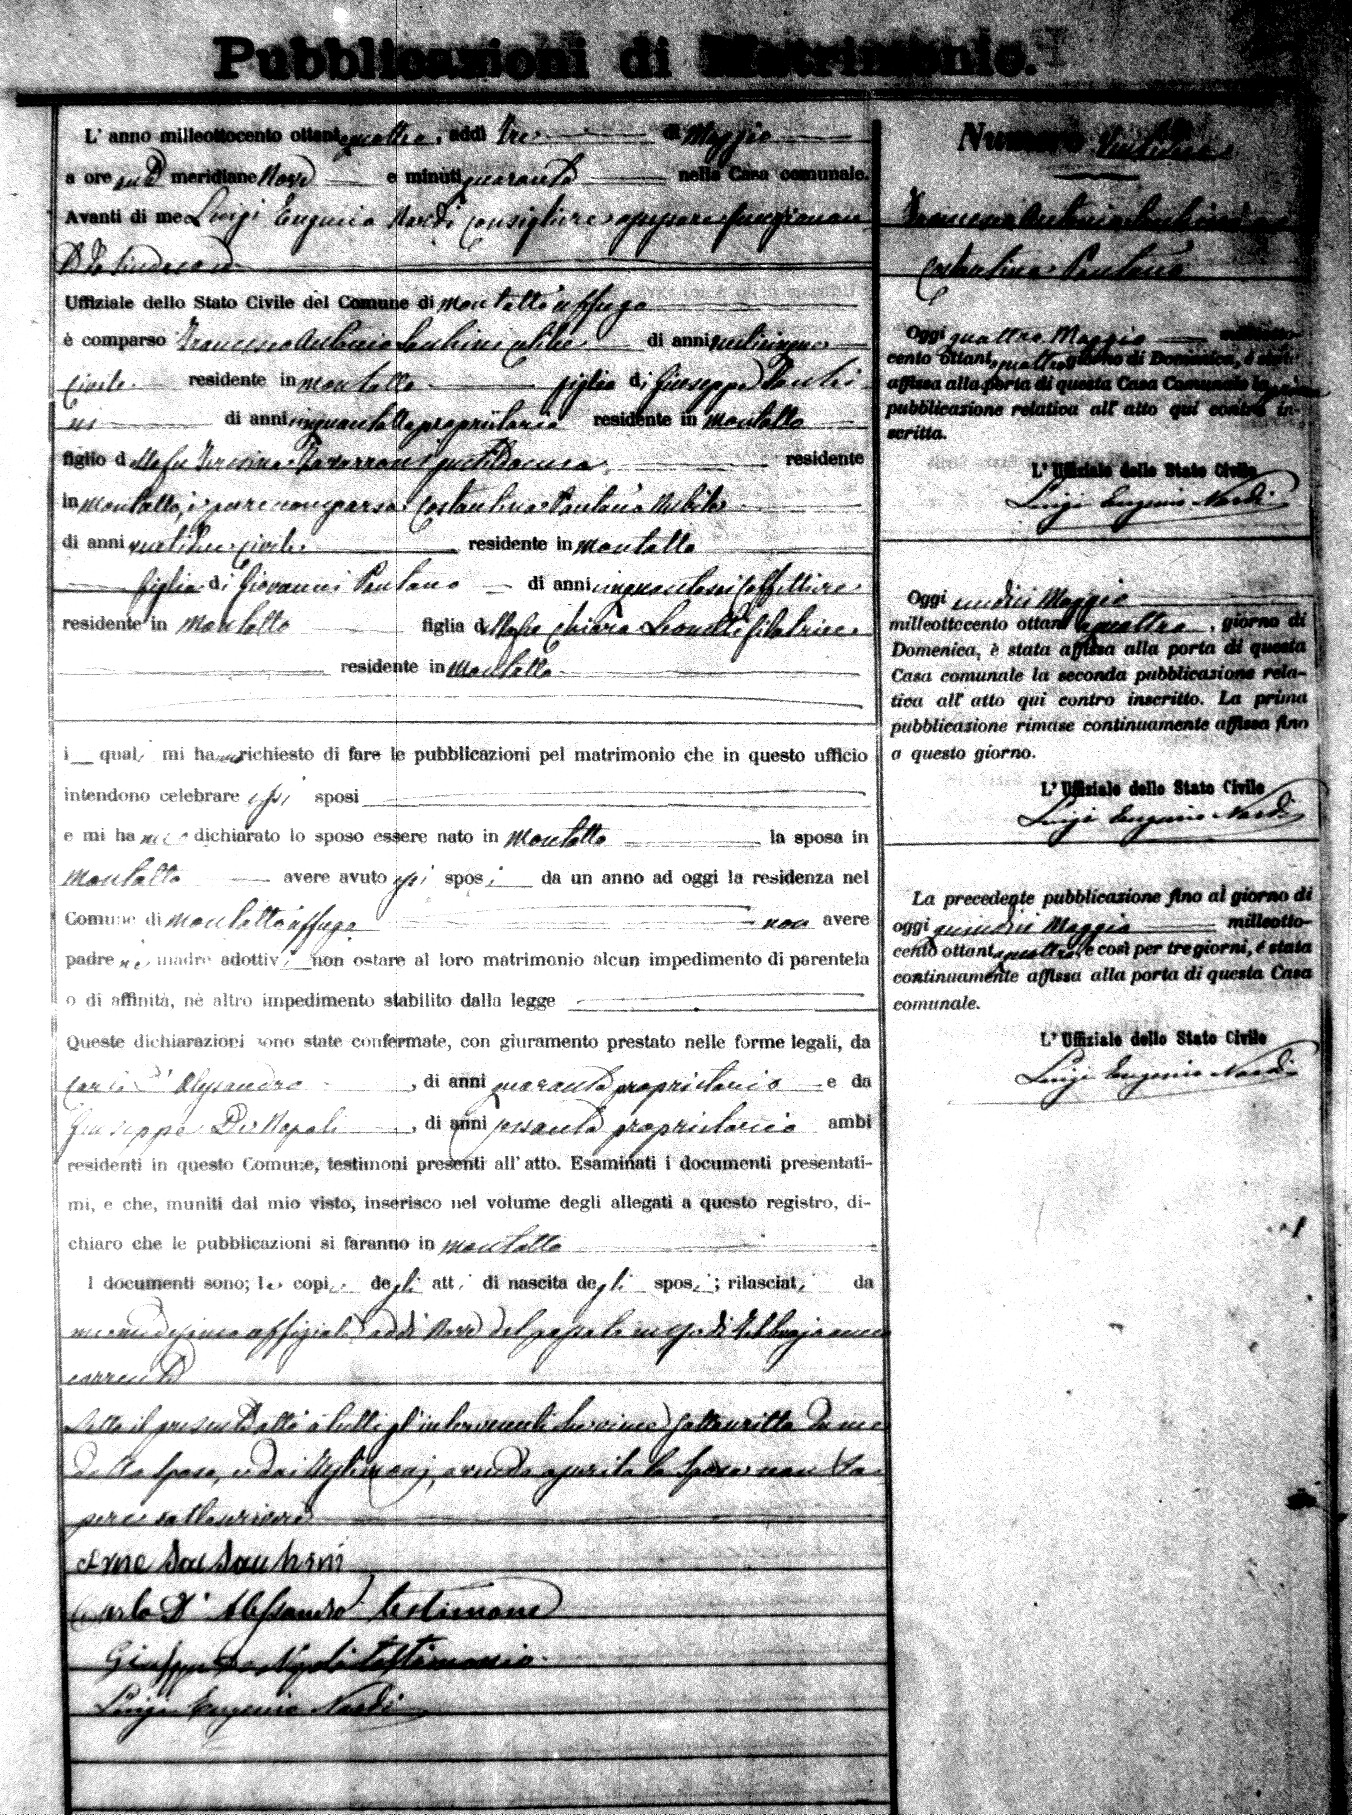 Pubblicazioni di Matrimonio.
L' anno milleottocento ottantaquattro, addì tre di Maggio
a ore anti meridiane Nove e minuti quaranta nella Casa comunale.
Avanti di me Luigi Eugenio Nardi Consigliere
Uffiziale dello Stato Civile del Comune di Montalto Uffugo
è comparso Francesco Antonio celibe di anni venticinque
Civile residente in Montalto figlio di Giuseppe
di anni proprietario residente in Montalto
figlio della fu residente
in Montalto, è pure comparsa Costantina Pantano Nubile
di anni civile residente in Montalto
figlia di Giovanni Pantano di anni cinquantasei Caffettiere
residente in Montalto figlia della fu Chiara filatrice
residente in Montalto
i quali mi hanno richiesto di fare le pubblicazioni pel matrimonio che in questo ufficio
intendono celebrare essi sposi
e mi hanno dichiarato lo sposo essere nato in Montalto la sposa in
Montalto avere avuto essi sposi da un anno ad oggi la residenza nel
Comune di Montalto Uffugo non avere
padre nè madre adottivi non ostare al loro matrimonio alcun impedimento di parentela
o di affinità, nè altro impedimento stabilito dalla legge
Queste dichiarazioni sono state confermate, con giuramento prestato nelle forme legali, da
Carlo D' Alessandro, di anni quaranta proprietario e da
Giuseppe De Napoli, di anni sessanta proprietario ambi
residenti in questo Comune, testimoni presenti all' atto. Esaminati i documenti presentati-
mi, e che, muniti dal mio visto, inserisco nel volume degli allegati a questo registro, di-
chiaro che le pubblicazioni si faranno in Montalto
I documenti sono; le copie degli atti di nascita degli sposi; rilasciati da
me medesimo uffiziale addì Nove del passato mese di Febbrajo anno
corrente
Letto il presente atto a tutti gl'intervenuti sottoscritto da me
dallo sposo, e dai testimoni, avendo asserito la sposa non sa-
pere sottoscrivere
Carlo D' Alessandro testimone
Giuseppe De Napoli testimonio
Luigi Eugenio Nardi
Numero
Francesco Antonio
Costantina Pantano
Oggi quattro Maggio milleotto-
cento ottantaquattro giorno di Domenica, è stata
affissa alla porta di questa Casa Comunale la prima
pubblicazione relativa all' atto qui contro in-
scritto.
L' Uffiziale dello Stato Civile
Luigi Eugenio Nardi
Oggi undici Maggio
milleottocento ottantaquattro, giorno di
Domenica, è stata affissa alla porta di questa
Casa comunale la seconda pubblicazione rela-
tiva all' atto qui contro inscritto. La prima
pubblicazione rimase continuamente affissa fino
a questo giorno.
L' Uffiziale dello Stato Civile
Luigi Eugenio Nardi
La precedente pubblicazione fino al giorno di
oggi quindici Maggio milleotto-
cento ottantaquattro, e così per tre giorni, é stata
continuamente affissa alla porta di questa Casa
comunale.
L' Uffiziale dello Stato Civile
Luigi Eugenio Nardi